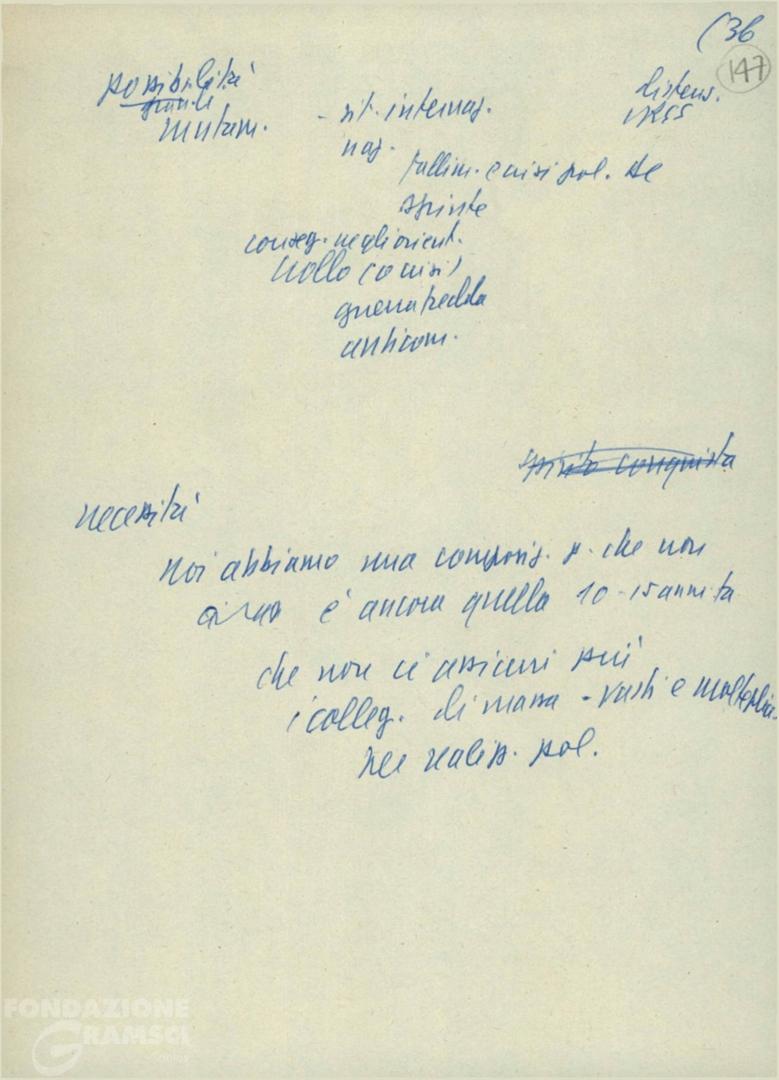 (36
147
possibilità
grande
mutam. - sit. internaz. distens. URSS
naz.
fallim. e crisi pol. dc
spinte
conseg. negli orient.
crollo (o crisi)
guerra fredda
anticom.
spirito conquista
necessità
noi abbiamo una composiz. p. che non
è ancora quella 10-15 anni fa
che non ci assicuri più
i colleg. di massa - vasti e molteplici
per realizz. pol.
FONDAZIONE
GRAMSCI
onlus